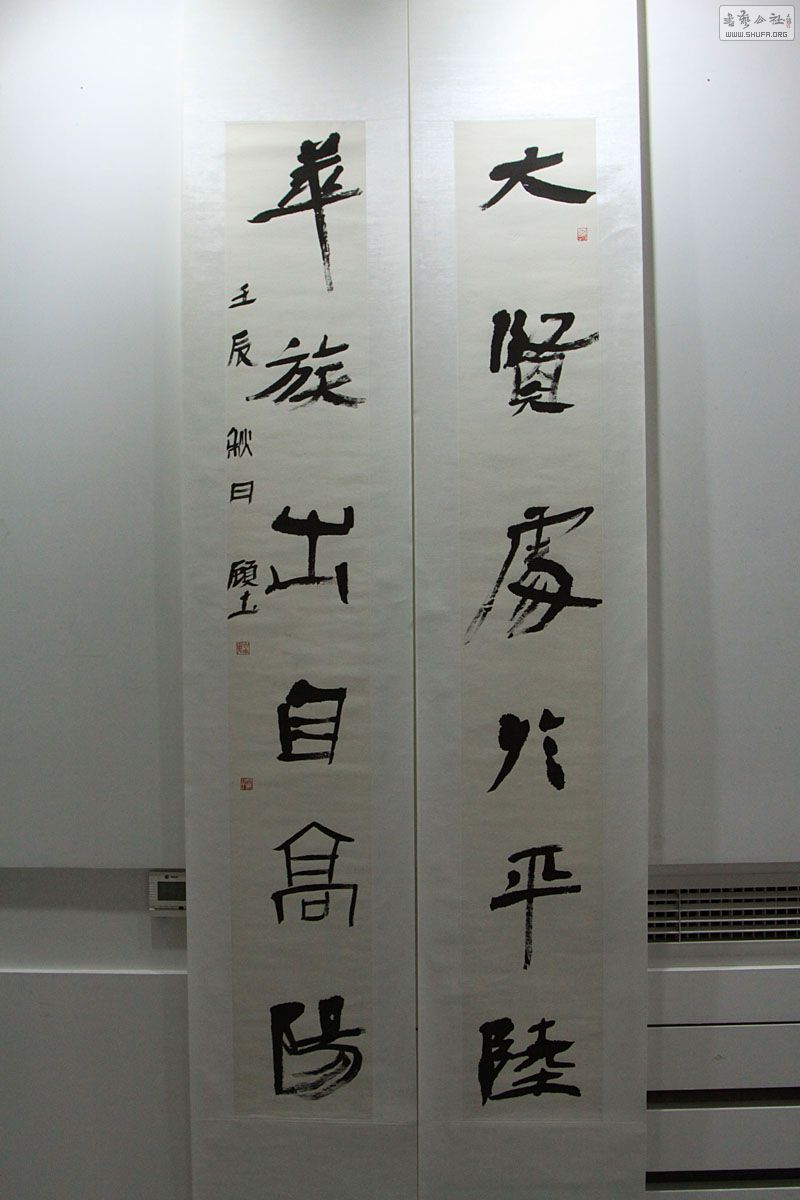 大賢處於平陸
華族出自高陽
壬辰秋日 顧工
書藝公社
WWW.SHUFA.ORG